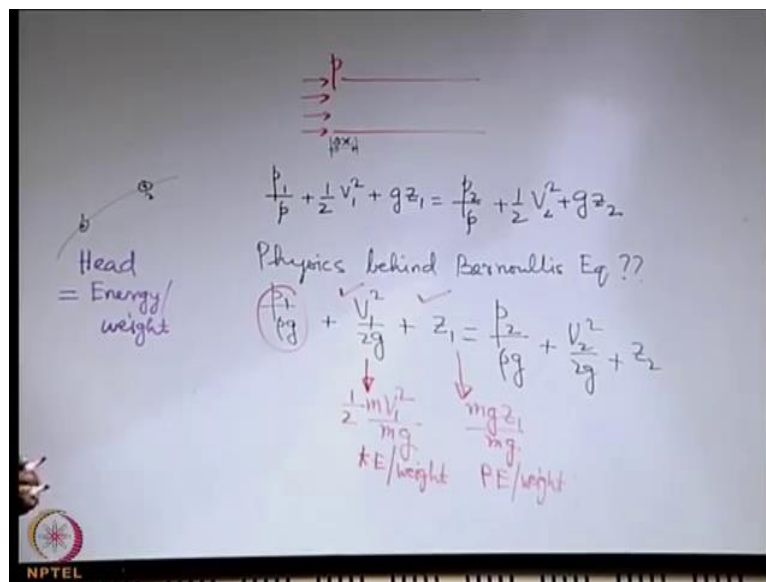 p
p₁/ρ + 1/2 V₁² + gz₁ = p₂/ρ + 1/2 V₂² + gz₂
Physics behind Barnoullis Eq ??
Head
= Energy/
weight
p₁/ρg + V₁²/2g + z₁ = p₂/ρg + V₂²/2g + z₂
1/2 mV₁²/mg mgz₁/mg
KE/weight PE/weight
NPTEL